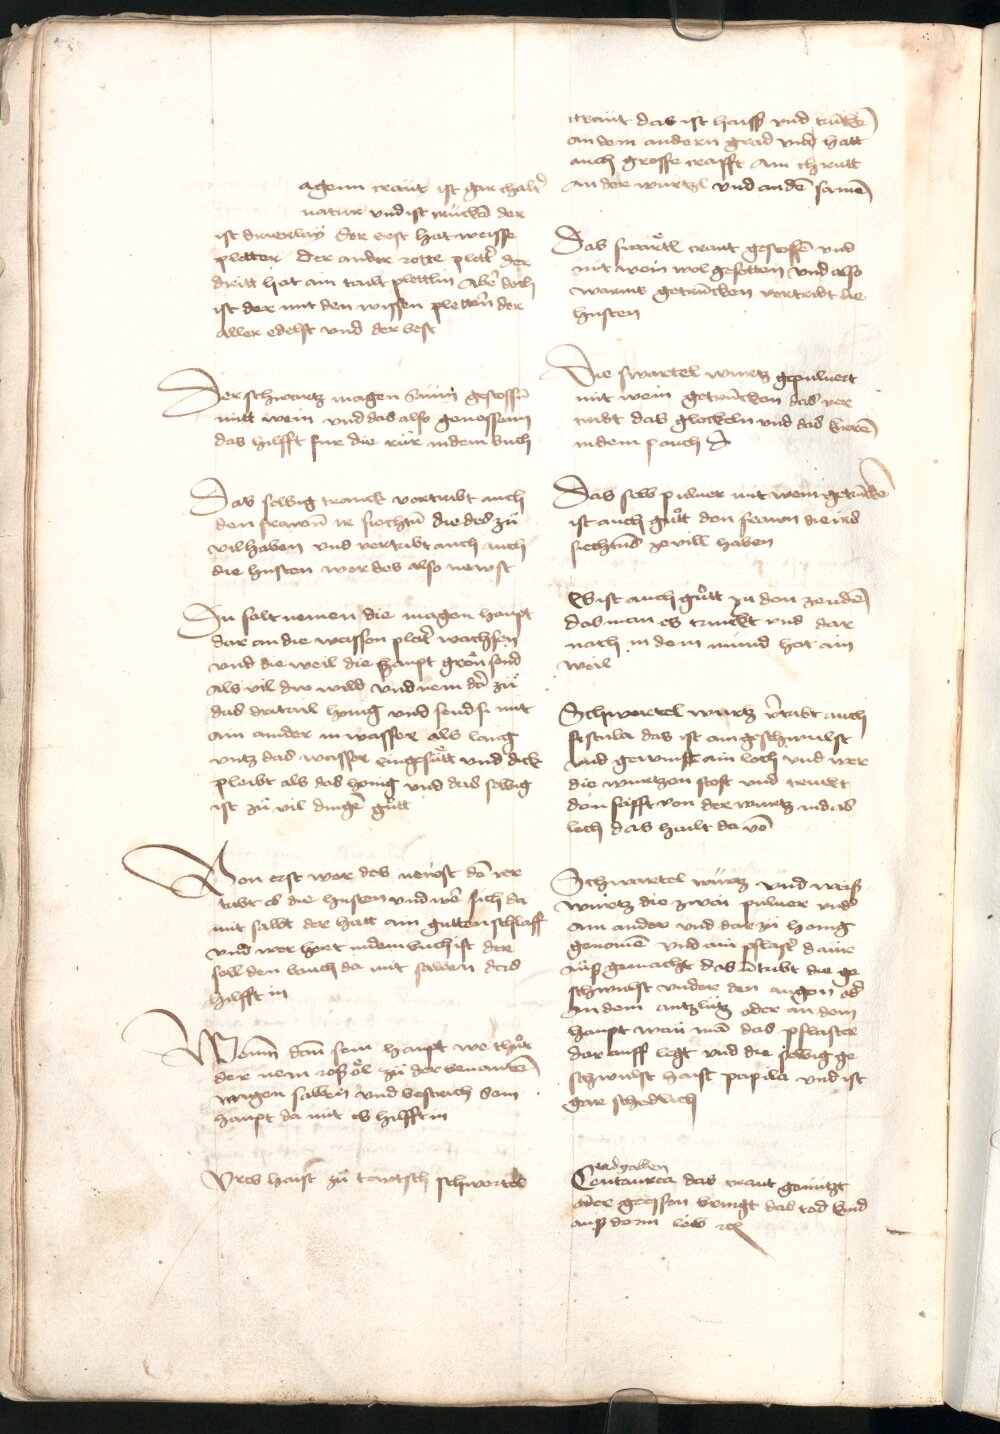 agenn craut ist gar chalt
natur und ist trucken der
ist dreyerlay der erst hat weisse
pletter der ander rotte plett der
dritt hat ain taub plettlin aber doch
ist der mit den wissen plettern der
aller edelst und der best
Der schwartz magen sam gestossn
mitt wein und das also genossenn
das hilfft fur die rur in dem buch
Das selbig tranck vertribt auch
den frawen ir siechtu die des zu
vil haben und vertribt auch
die husten wer des also newst
Du solt nemen die magen haupt
dar an die weissen plett wachsen
und die weil die haupt gron send
als vil du wild und nem da zu
das dritail honig und send si mit
ain ander in wasser als lang
untz das wasser eingesutt und dick
pleibt als das honig und das selbig
ist zu vil dingen gutt
Von erst wer des neust da ver
tribt es die husten und wer sich da
mit salbt der hatt ain gutten schlaff
und wer hert in dem buch ist der
soll den bauch da mit salben das
hilfft in
Wenn dan sein haupt we thut
der nem ros ol zu der benanten
magen salben und bestrich sein
haupt da mit es hilfft in
Yreos haist zu tewtsch schwertel
craut das ist haiss und trucken
an dem andern grad und hatt
auch grosse crafft am chrutt
an der wurtzl und an dem samen
Das swertl craut gestossen und
mit wein wol gesotten und also
warms getruncken vertribt die
husten
Die swertel wurtz gepulvert
mit wein getruncken das ver
tribt das glockeln und das kurren
in dem pauch
Das selb pulver mit wein getruncken
ist auch gutt den frawen die irs
siechtums ze vill haben
Es ist auch gutt zu den zenden
das man es trinckt und dar
nach in dem mund hat ain
weil
Schwertel wurtz vertribt auch
fistula das ist ain geschwulst
und gewinst ain loch und wer
die wurtzen stost und truckt
den safft von der wurtz in das
loch das hailt da von
Schwertel wurtz und weiss
wurtz die zwai pulver under
ain ander und dar zu honig
genomen und ain pflaster daruss
gemacht das vertribt die ge
schwulst under den augen oder
in dem antzlutz oder an dem
haupt wan man das pflaster
dar auff legt und die selbig ge
schwulst haist papula und ist
gar schedlich
erdgallen
Centaurea das craut genutzt
oder gegessen bringt das tod kind
auss dem leib